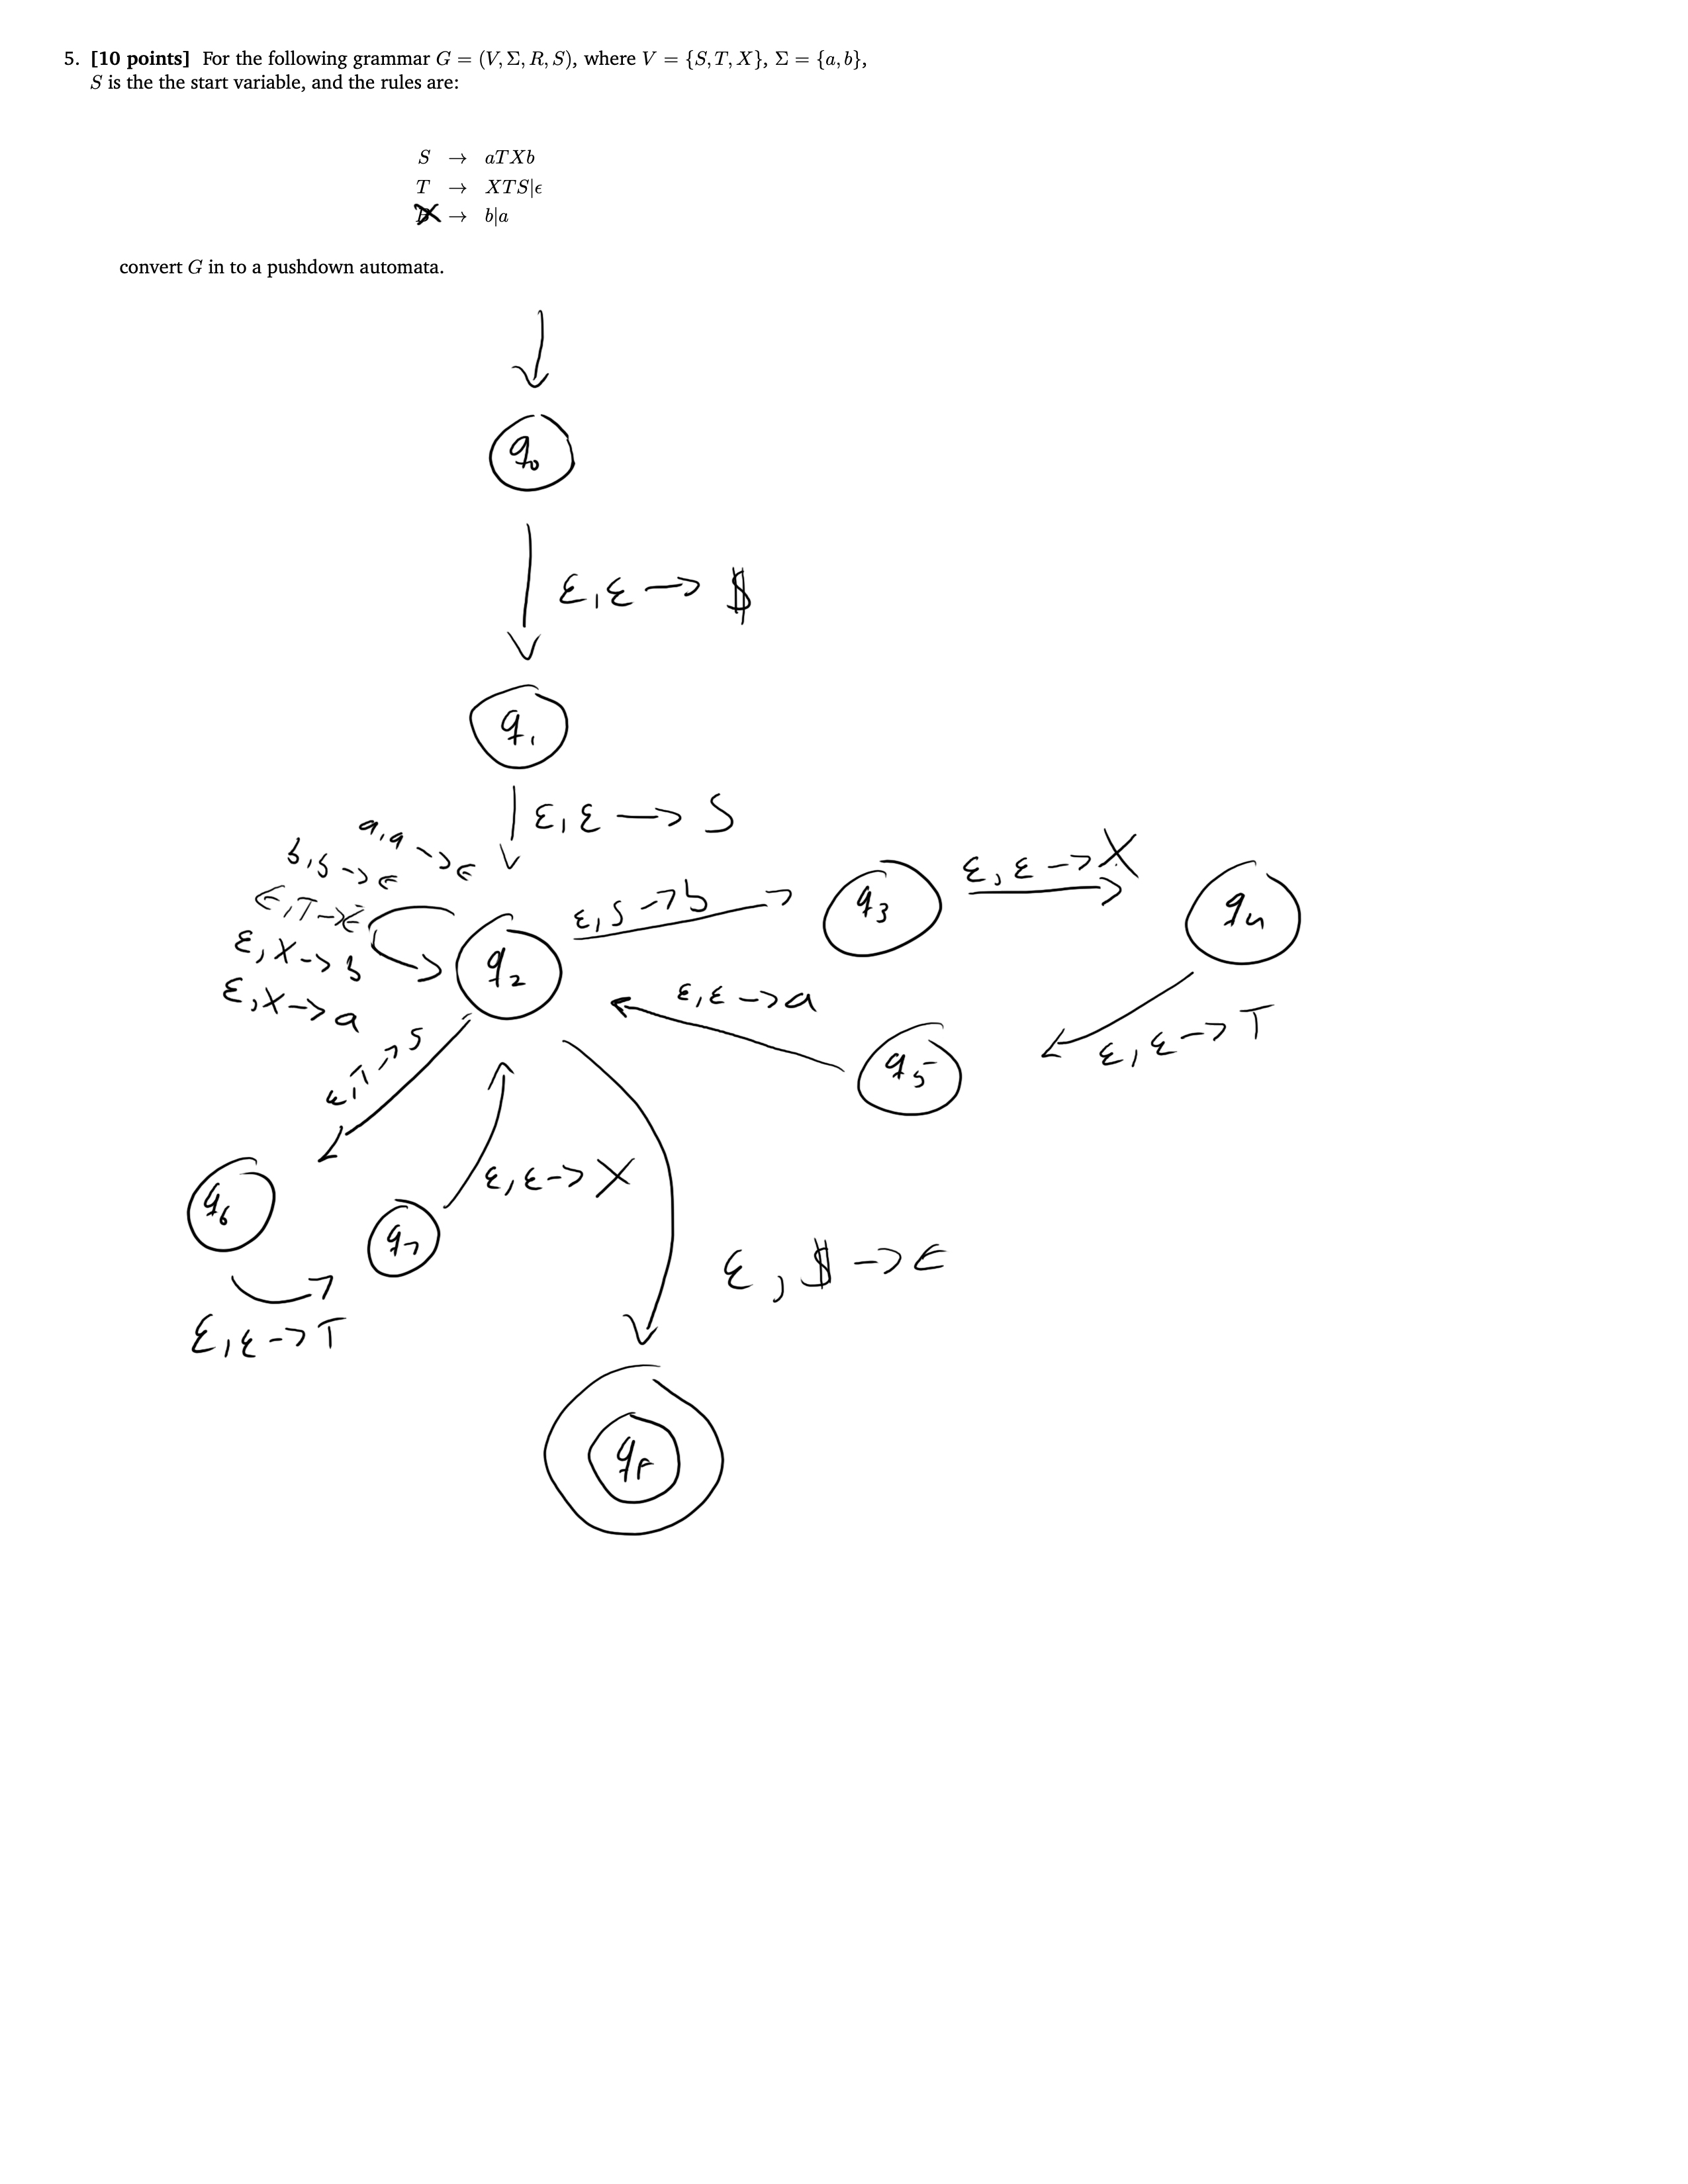 5. [10 points] For the following grammar G = (V, Σ, R, S), where V = {S, T, X}, Σ = {a, b},
S is the the start variable, and the rules are:
S → aTXb
T → XTS|ϵ
X → b|a
convert G in to a pushdown automata.
q₀
ε,ε → $
q₁
ε,ε → S
a,a → ϵ
b,b → ϵ
ϵ,T → ϵ
ε,X → b
ε,X → a
q₂
ε,S → b
q₃
ε,ε → X
q₄
ε,ε → T
q₅
ε,ε → a
ε,T → S
q₆
ε,ε → T
q₇
ε,ε → X
ε,$ → ϵ
qF